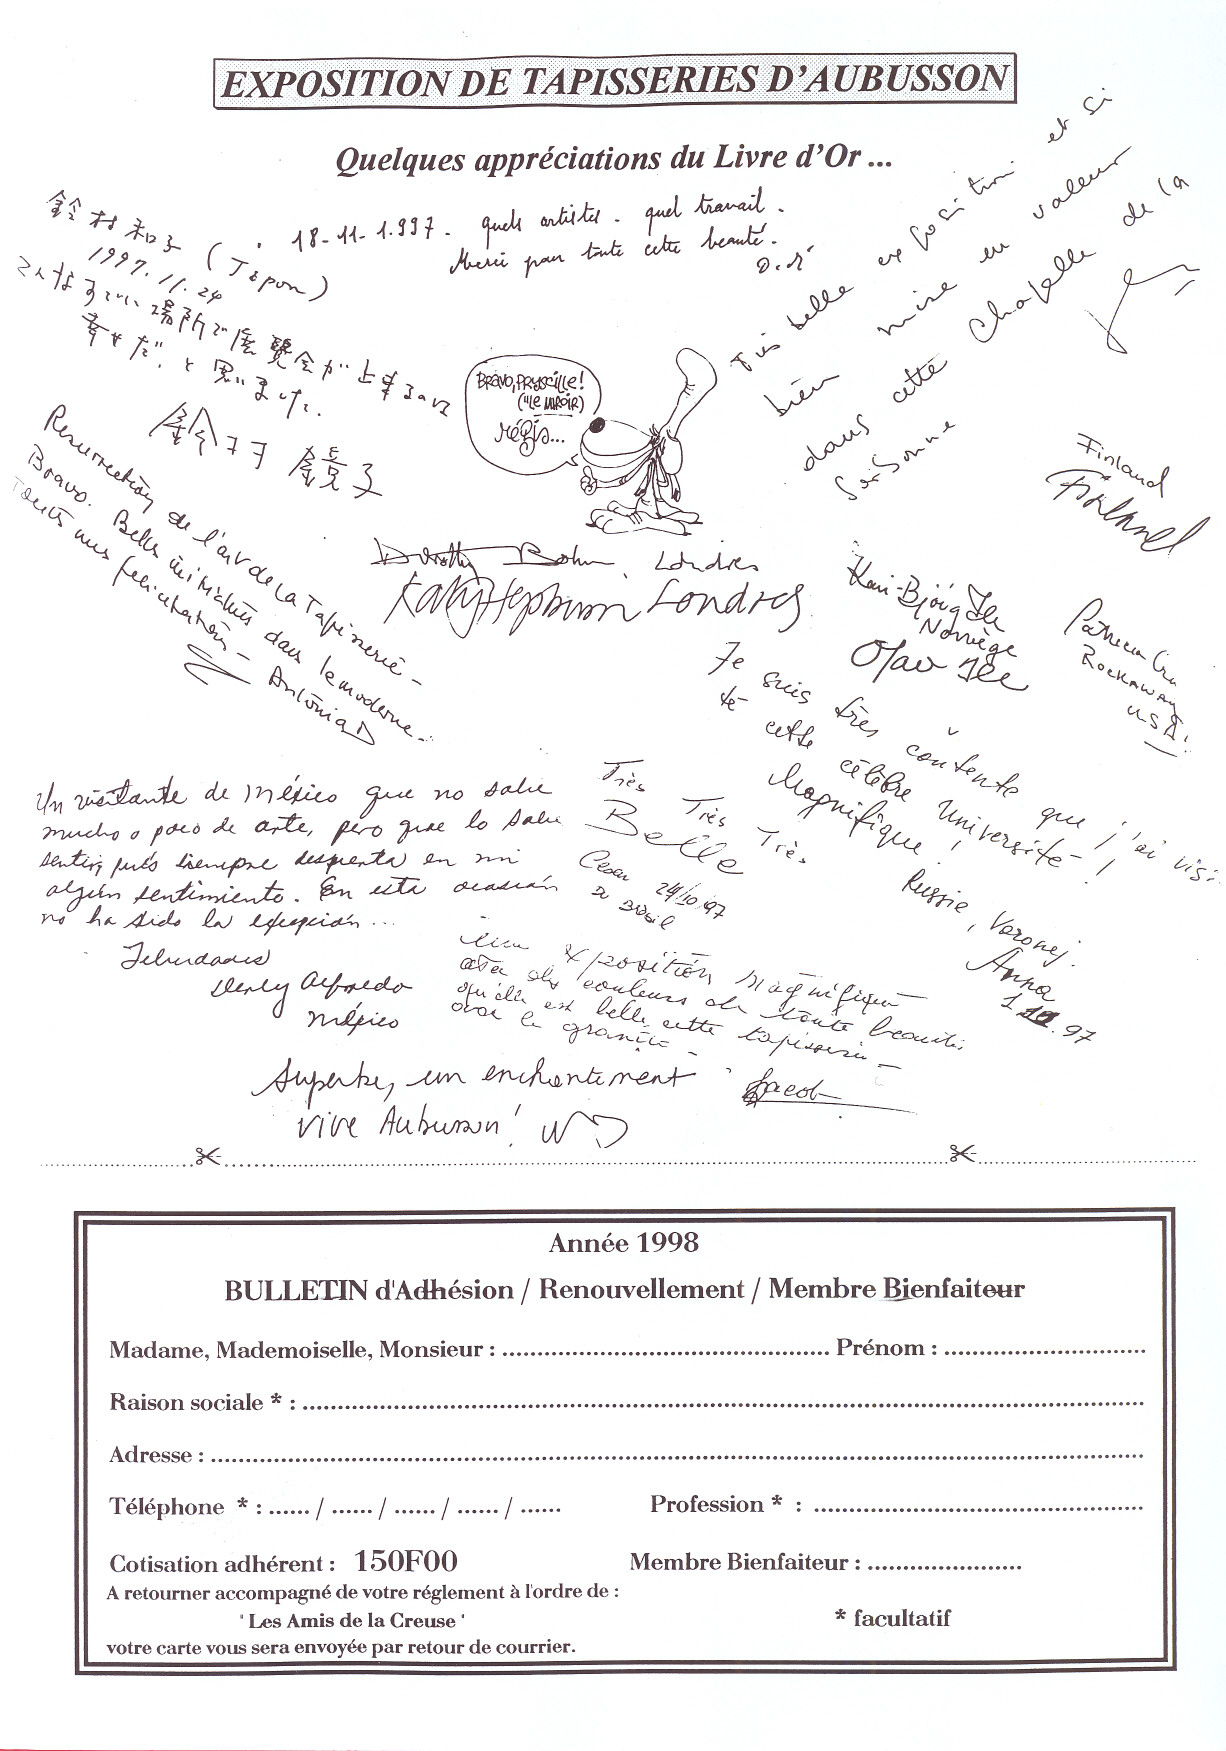 EXPOSITION DE TAPISSERIES D'AUBUSSON
Quelques appréciations du Livre d'Or ...
鈴村和子 (Japon)
1997.11.24
こんなすごい場所で展覧会が出来るのは
幸せだ。と思いました。
18-11-1.997. quels artistes. quel travail.
Merci pour toute cette beauté.
Très belle exposition et si
bien mise en valeur
dans cette Chapelle de la
Sorbonne
BRAVO, PRYSCILLE!
("LE MIROIR)
RÉGIS...
Resurrection de l'art de la Tapisserie -
Bravo. Belles initiatives dans le moderne..
Toutes mes félicitations -
Antonia
Finland
Dorothy Bohm, Londres
Katy Hepburn Londres
Kari-Bjorg Ile
Norvège
Olav Ile
Patricia
Rockaway
USA!
Je suis très contente que j'ai visi-
té cette célèbre Université!
Magnifique!
Russie, Voronej.
Anna
97
Un visitante de México que no sabe
mucho o poco de arte, pero que lo sabe
sentir, pués siempre despierta en mi
algún sentimiento. En esta ocasión
no ha sido la excepción...
Felicidades
Alfredo
México
Très Très Très
Belle
24/10/97
exposition magnifique
avec des couleurs de toute beauté.
qu'elle est belle cette tapisserie -
Jacob
Superbe, un enchantement
vive Aubusson!
Année 1998
BULLETIN d'Adhésion / Renouvellement / Membre Bienfaiteur
Madame, Mademoiselle, Monsieur : ............................................... Prénom : .............................
Raison sociale * : ........................................................................................................................
Adresse : .....................................................................................................................................
Téléphone * : ...... / ...... / ...... / ...... / ...... Profession * : ...............................................
Cotisation adhérent : 150F00 Membre Bienfaiteur : ......................
A retourner accompagné de votre réglement à l'ordre de :
' Les Amis de la Creuse ' * facultatif
votre carte vous sera envoyée par retour de courrier.